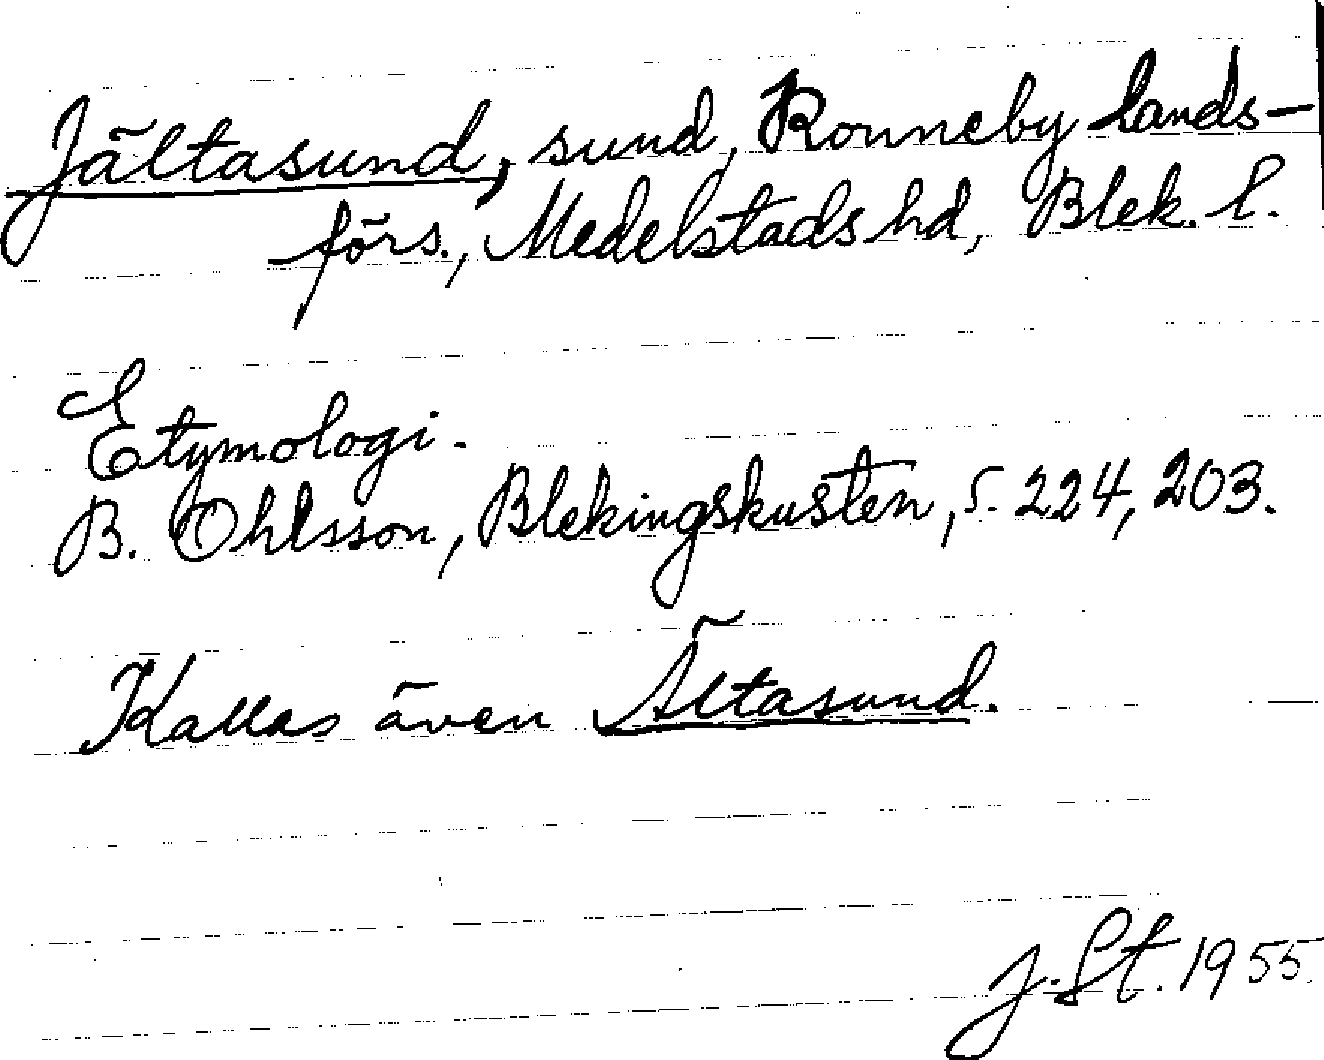 Jältasund, sund, Ronneby lands-
förs., Medelstads hd, Blek. l.
Etymologi.
B. Ohlsson, Blekingskusten, s. 224, 203.
Kallas även Ältasund.
J. St. 1955.